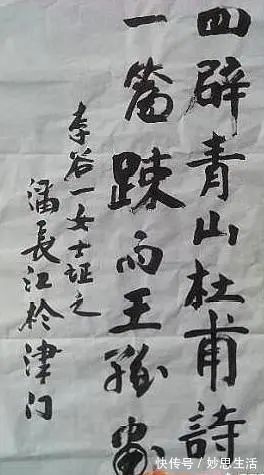 四辟青山杜甫詩
一篙踈雨王孫畫
李谷一女士证之
潘長江於津门
快传号/妙思生活